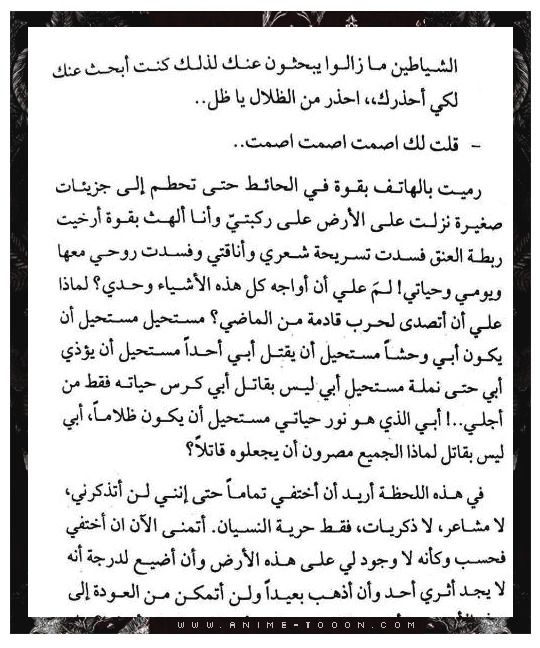 الشياطين ما زالوا يبحثون عنك لذلك كنت أبحث عنك
لكي أحذرك،، احذر من الظلال يا ظل..
- قلت لك اصمت اصمت اصمت..
رميت بالهاتف بقوة في الحائط حتى تحطم إلى جزيئات
صغيرة نزلت على الأرض على ركبتيّ وأنا ألهث بقوة أرخيت
ربطة العنق فسدت تسريحة شعري وأناقتي وفسدت روحي معها
ويومي وحياتي! لمَ علي أن أواجه كل هذه الأشياء وحدي؟ لماذا
علي أن أتصدى لحرب قادمة من الماضي؟ مستحيل مستحيل أن
يكون أبي وحشاً مستحيل أن يقتل أبي أحداً مستحيل أن يؤذي
أبي حتى نملة مستحيل أبي ليس بقاتل أبي كرس حياته فقط من
أجلي..! أبي الذي هو نور حياتي مستحيل أن يكون ظلاماً، أبي
ليس بقاتل لماذا الجميع مصرون أن يجعلوه قاتلاً؟
في هذه اللحظة أريد أن أختفي تماماً حتى إنني لن أتذكرني،
لا مشاعر، لا ذكريات، فقط حرية النسيان. أتمنى الآن ان أختفي
فحسب وكأنه لا وجود لي على هذه الأرض وأن أضيع لدرجة أنه
لا يجد أثري أحد وأن أذهب بعيداً ولن أتمكن من العودة إلى
WWW.ANIME-TOOON.COM